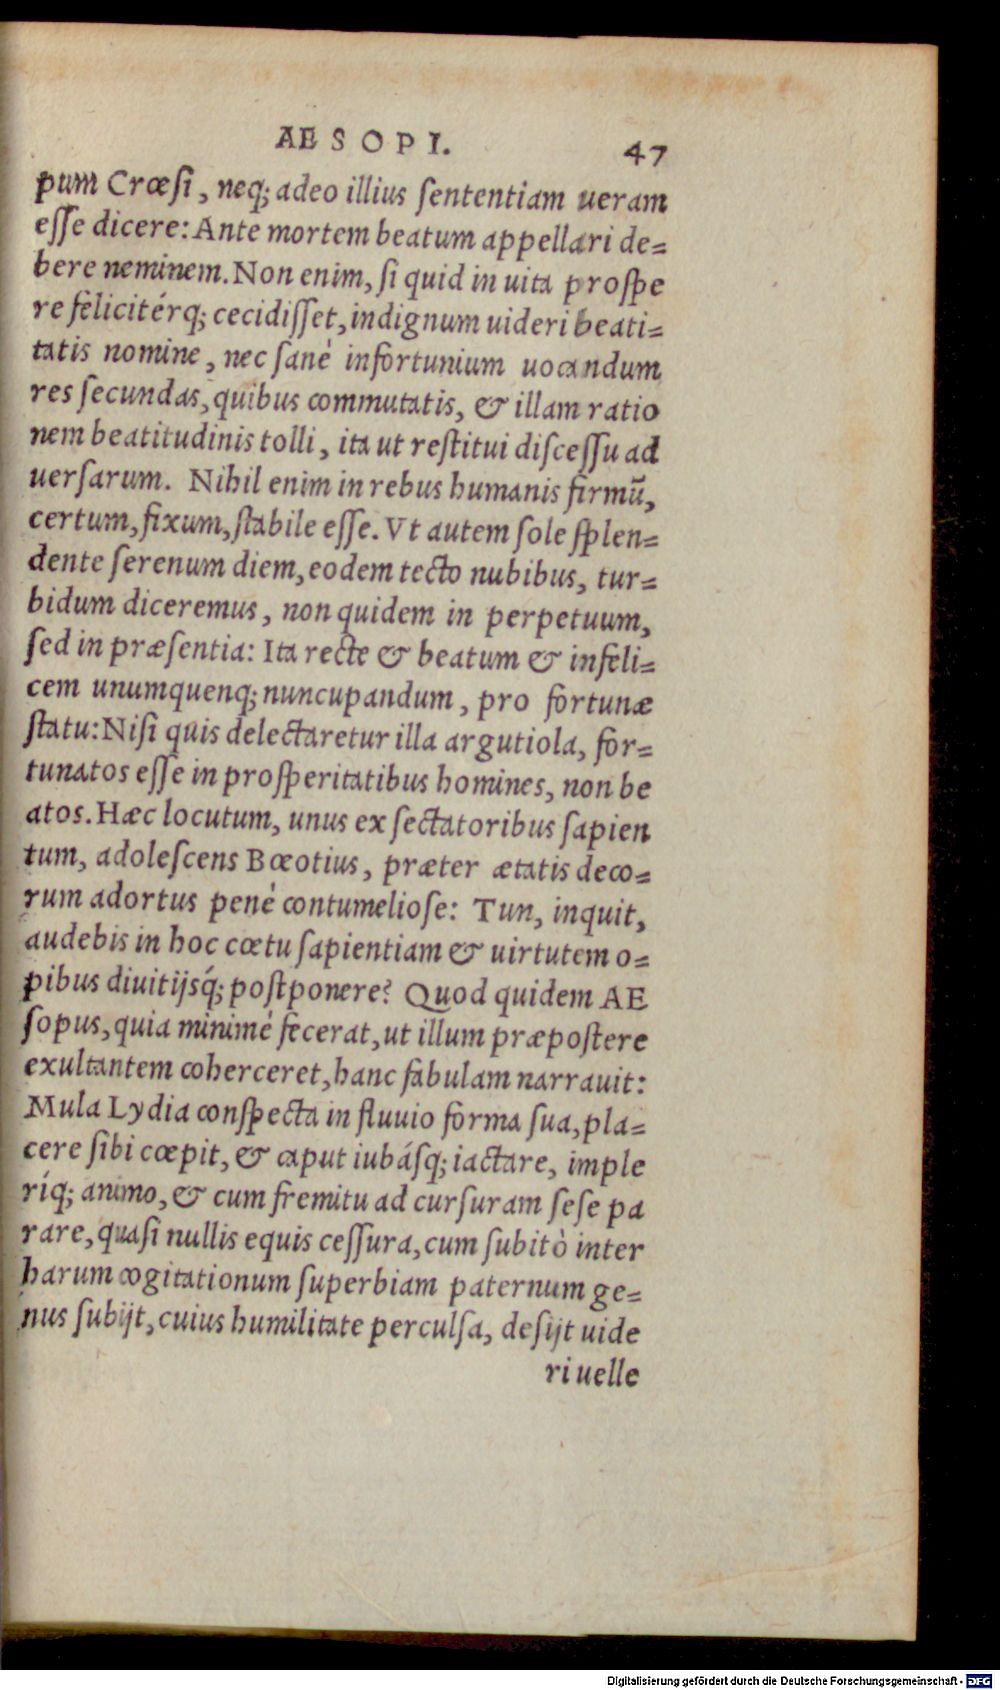 AESOPI. 47
pum Crœſi, neq; adeo illius ſententiam ueram
eſſe dicere: Ante mortem beatum appellari de=
bere neminem. Non enim, ſi quid in uita proſpe
re felicitérq; cecidiſſet, indignum uideri beati=
tatis nomine, nec ſanè infortunium uocandum
res ſecundas, quibus commutatis, & illam ratio
nem beatitudinis tolli, ita ut reſtitui diſceſſu ad
uerſarum. Nihil enim in rebus humanis firmũ,
certum, fixum, ſtabile eſſe. Vt autem ſole ſplen=
dente ſerenum diem, eodem tecto nubibus, tur=
bidum diceremus, non quidem in perpetuum,
ſed in præſentia: Ita recte & beatum & infeli=
cem unumquenq; nuncupandum, pro fortunæ
ſtatu: Niſi quis delectaretur illa argutiola, for=
tunatos eſſe in proſperitatibus homines, non be
atos. Hæc locutum, unus ex ſectatoribus ſapien
tum, adoleſcens Bœotius, præter ætatis deco=
rum adortus penè contumelioſe: Tun, inquit,
audebis in hoc cœtu ſapientiam & uirtutem o=
pibus diuitijsq́; poſtponere? Quod quidem AE
ſopus, quia minimè fecerat, ut illum præpoſtere
exultantem coherceret, hanc fabulam narrauit:
Mula Lydia conſpecta in fluuio forma ſua, pla=
cere ſibi cœpit, & caput iubáſq; iactare, imple
ríq; animo, & cum fremitu ad curſuram ſeſe pa
rare, quaſi nullis equis ceſſura, cum ſubitò inter
harum cogitationum ſuperbiam paternum ge=
nus ſubijt, cuius humilitate perculſa, deſijt uide
ri uelle
Digitalisierung gefördert durch die Deutsche Forschungsgemeinschaft - DFG